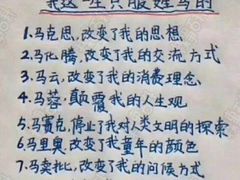 我这一生只服姓马的
1.马克思,改变了我的思想
2.马化腾,改变了我的交流方式
3.马云,改变了我的消费理念
4.马蓉,颠覆我的人生观
5.马赛克,停止了我对人类文明的探索
6.马里奥,改变了我童年的颜色
7.马卖批,改变了我的问候方式